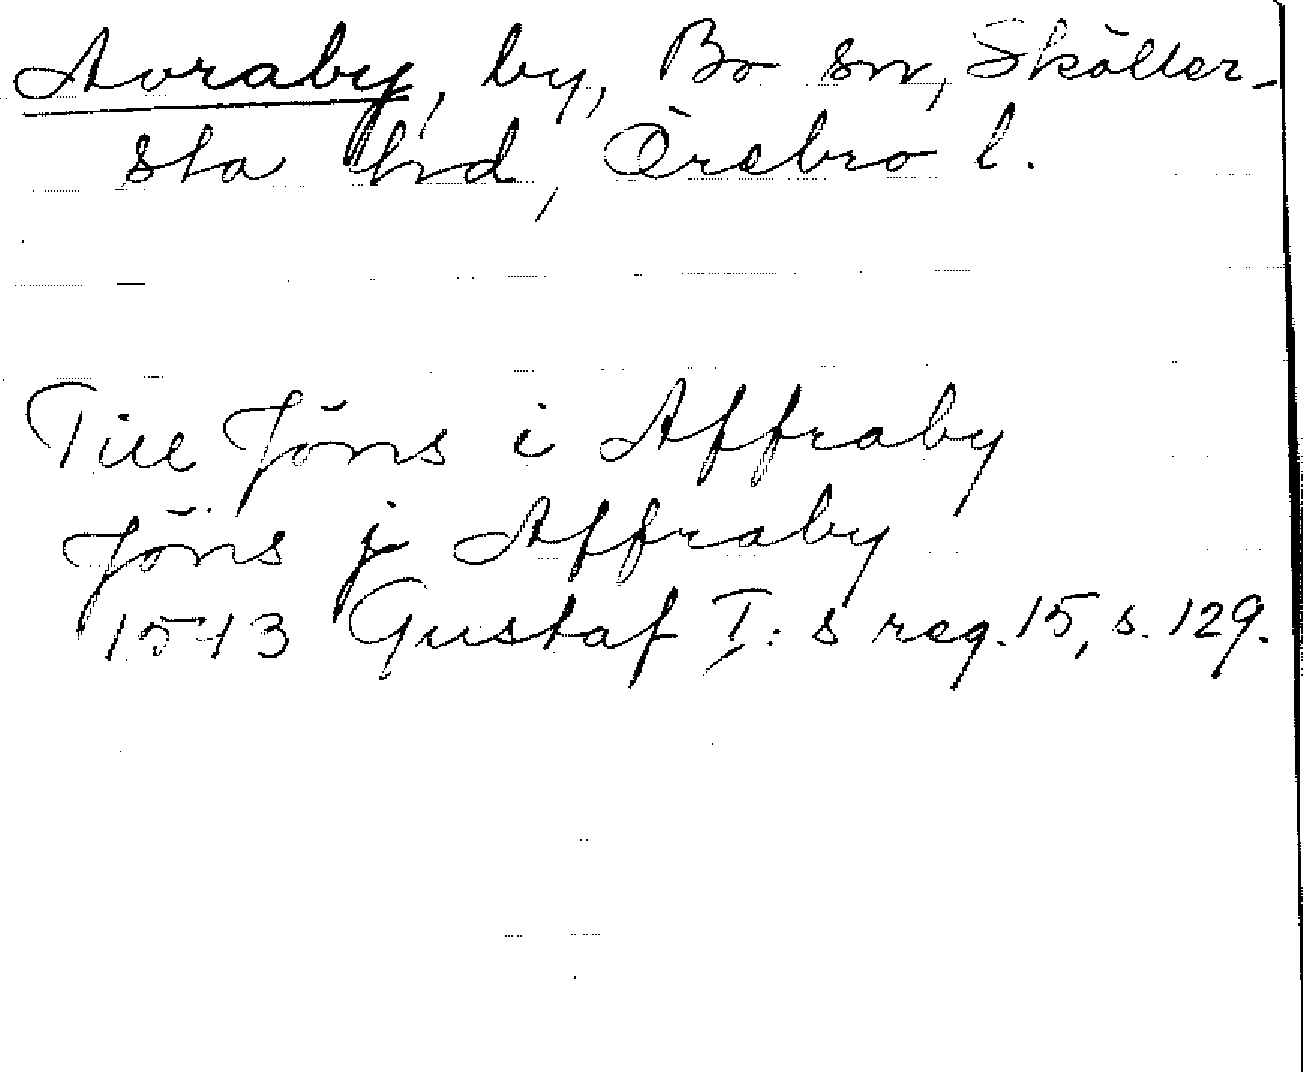 Avraby, by, Bo sn, Sköller-
sta hrd, Örebro l.
Till Jöns i Affraby
Jöns j Affraby
1543 Gustaf I:s reg. 15, s. 129.